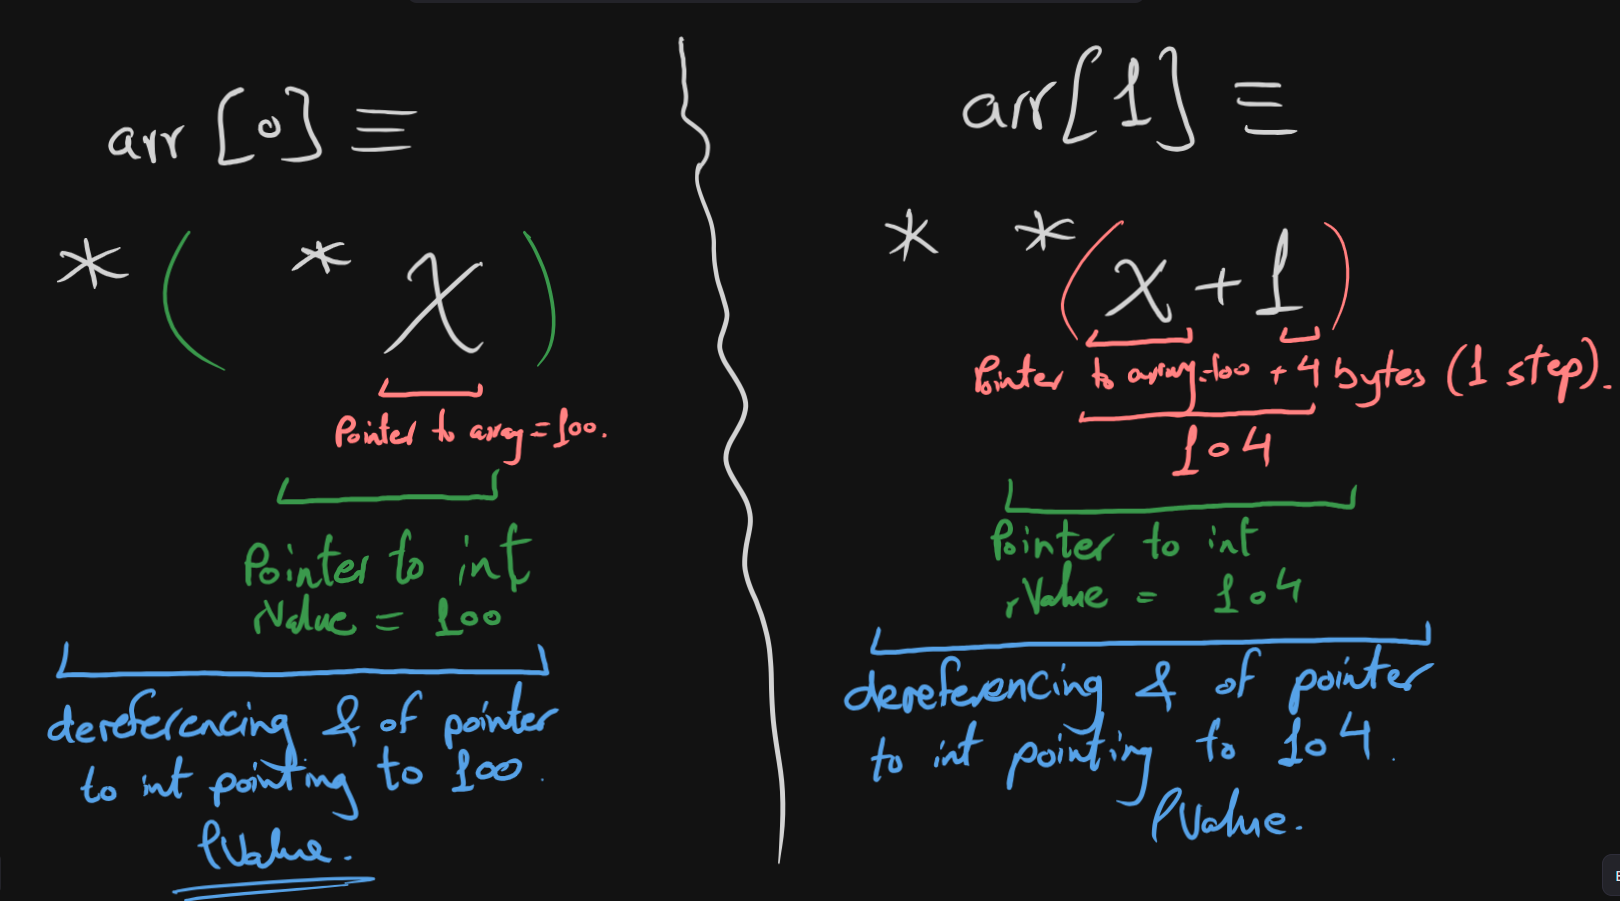 arr [0] ≡
* ( * x )
Pointer to array = 100.
Pointer to int
rValue = 100
dereferencing & of pointer
to int pointing to 100.
lValue.
arr[1] ≡
* * (x + 1)
Pointer to array = 100 + 4 bytes (1 step).
104
Pointer to int
rValue = 104
dereferencing & of pointer
to int pointing to 104.
lValue.